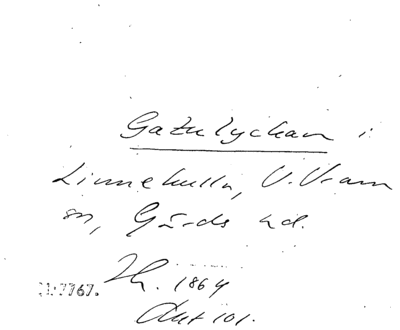 Gatulyckan i
Linnehulla, V. Vram
sn, Gärds hd.
Th. 1864
Akt 101.